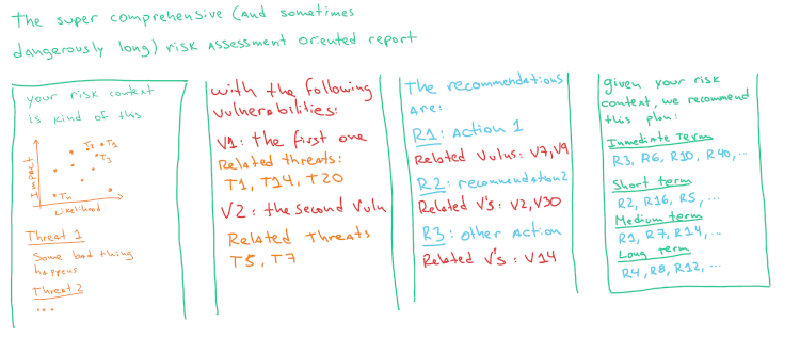 The super comprehensive (and sometimes
dangerously long) risk assessment oriented report
your risk context
is kind of this
Impact
T2 T1
T3
Tn
Likelihood
Threat 1
Some bad thing
happens
Threat 2
...
with the following
vulnerabilities:
V1: the first one
Related threats:
T1, T14, T20
V2: the second vuln
Related threats
T5, T7
The recommendations
are:
R1: Action 1
Related vulns: V7, V9
R2: recommendation2
Related V's: V2, V30
R3: other Action
Related V's: V14
given your risk
context, we recommend
this plan:
Inmediate term
R3, R6, R10, R40, ...
Short term
R2, R16, R5, ...
Medium term
R1, R7, R14, ...
Long term
R4, R8, R12, ...